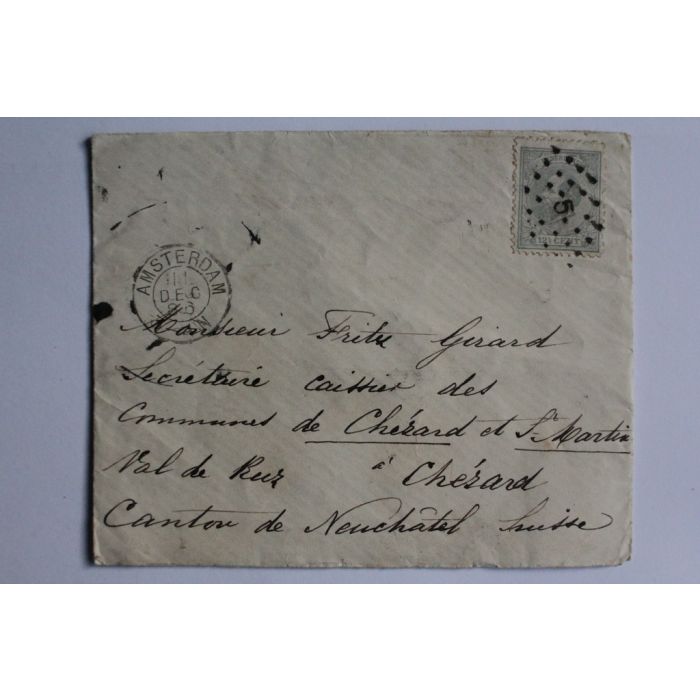 5
12½ CENT
AMSTERDAM
DEC
86
Monsieur Fritz Girard
Secrétaire caissier des
Communes de Chézard et St Martin
Val de Ruz à Chézard
Canton de Neuchâtel Suisse